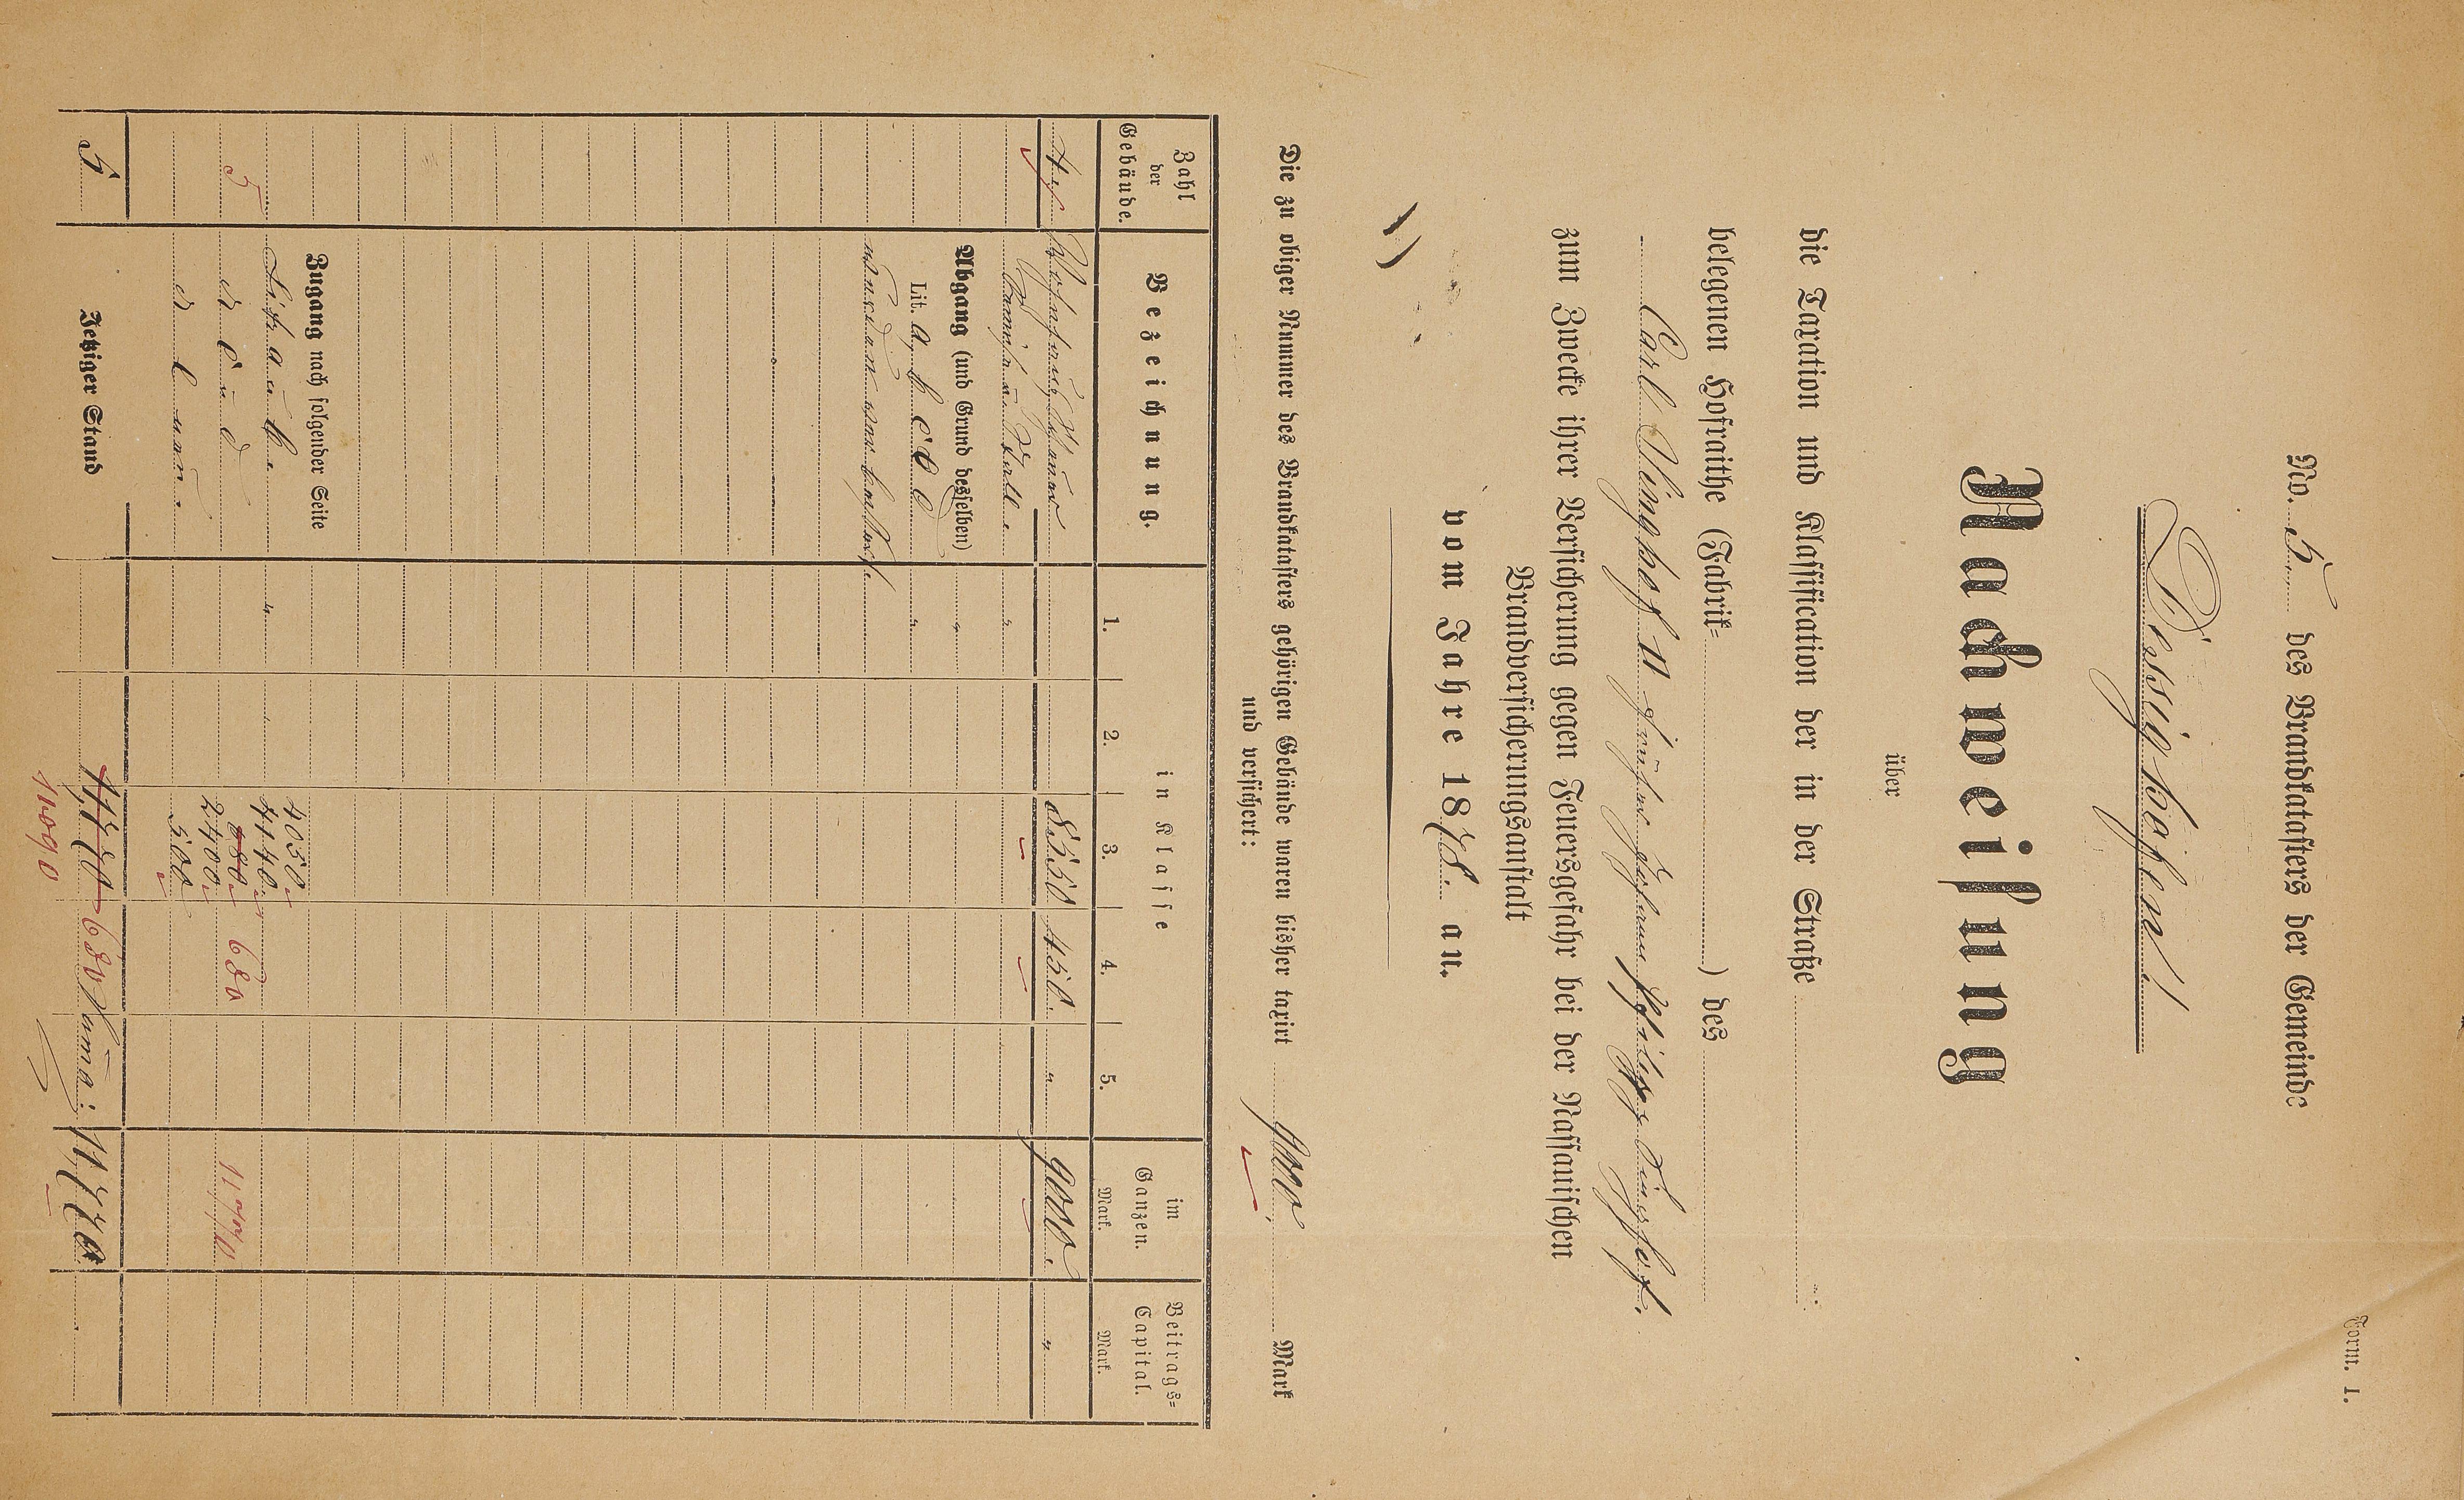 Form. 1.
No. 5 des Brandkatasters der Gemeinde
Dessighofen!
Nachweisung
über
die Taxation und Klassification der in der Straße
belegenen Hofraithe (Fabrik= ) des
Carl Singhof II früher Johann Philipp Singhof.
zum Zwecke ihrer Versicherung gegen Feuersgefahr bei der Nassauischen
Brandversicherungsanstalt
vom Jahre 1878. an.
1)
Die zu obiger Nummer des Brandkatasters gehörigen Gebäude waren bisher taxirt 9000, Mark
und versichert:
Zahl der Gebäude. Bezeichnung. in Klasse im Ganzen. Beitrags= Capital.
1. 2. 3. 4. 5. Mark. Mark.
4 Wohnhaus, Scheuer 8550 450. " 9000. "
u. Stall. "
Abgang (und Grund desselben) "
Lit. a, b c d "
wurden
Zugang nach folgender Seite 4050.
Lit. a u. b. " 4140.
5 " c u. d 680. 680 11770
2400.
" 500
5. Jetziger Stand 11770 680 Suma: 11770
11090